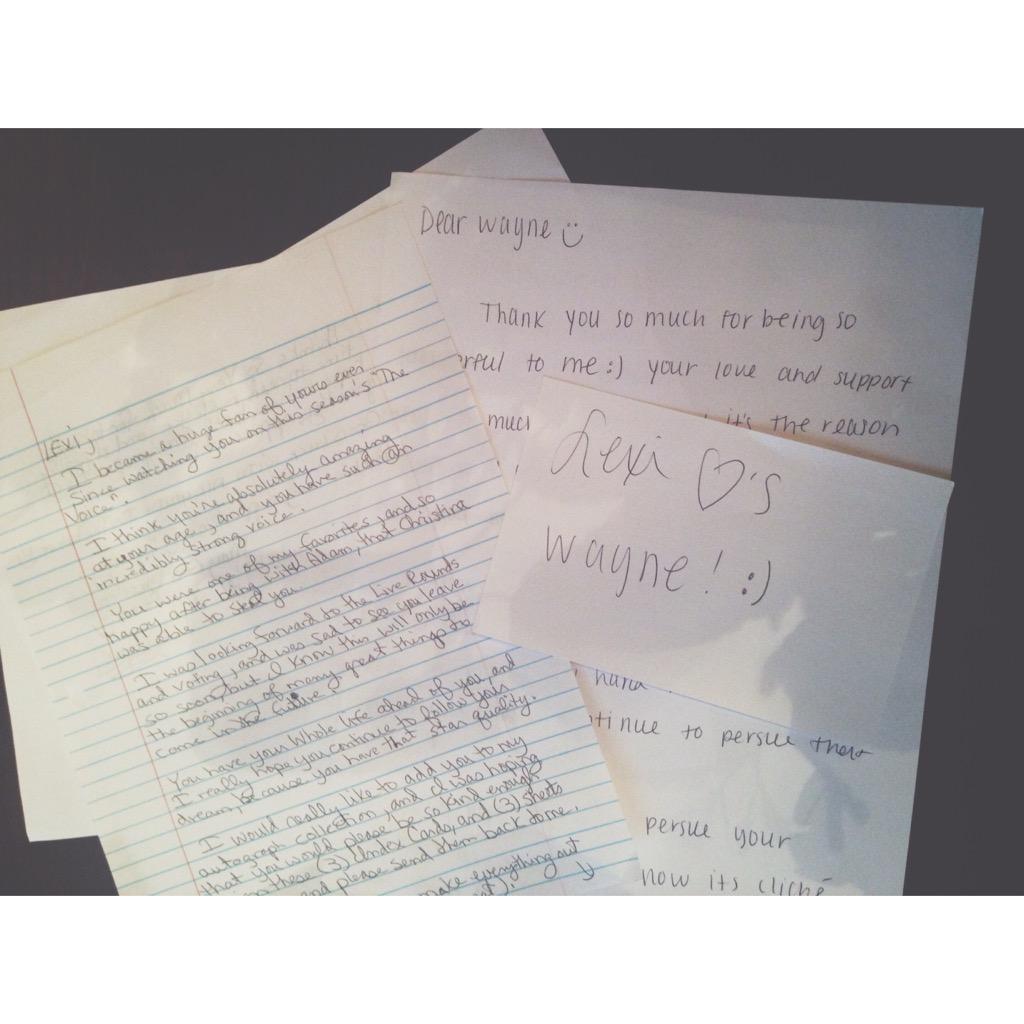 LEXI,
I became a huge fan of yours ever
since watching you on this season's "The
Voice".
I think you're absolutely amazing
at your age, and you have such an
incredibly strong voice.
You were one of my favorites, and so
happy after being with Adam, that Christina
was able to steal you.
I was looking forward to the Live Rounds
and voting, and was sad to see you leave
so soon, but I know this will only be
the beginning of many great things to
come in the future.
You have your whole life ahead of you, and
I really hope you continue to follow your
dream, because you have that star quality.
I would really like to add you to my
autograph collection, and I was hoping
that you would please be so kind enough
these (3) Index Cards, and (3) sheets
and please send them back to me.
make everything out
Dear Wayne
Thank you so much for being so
to me :) your love and support
it's the reason
Lexi ♡'s
Wayne! :)
to persue their
persue your
now its cliché